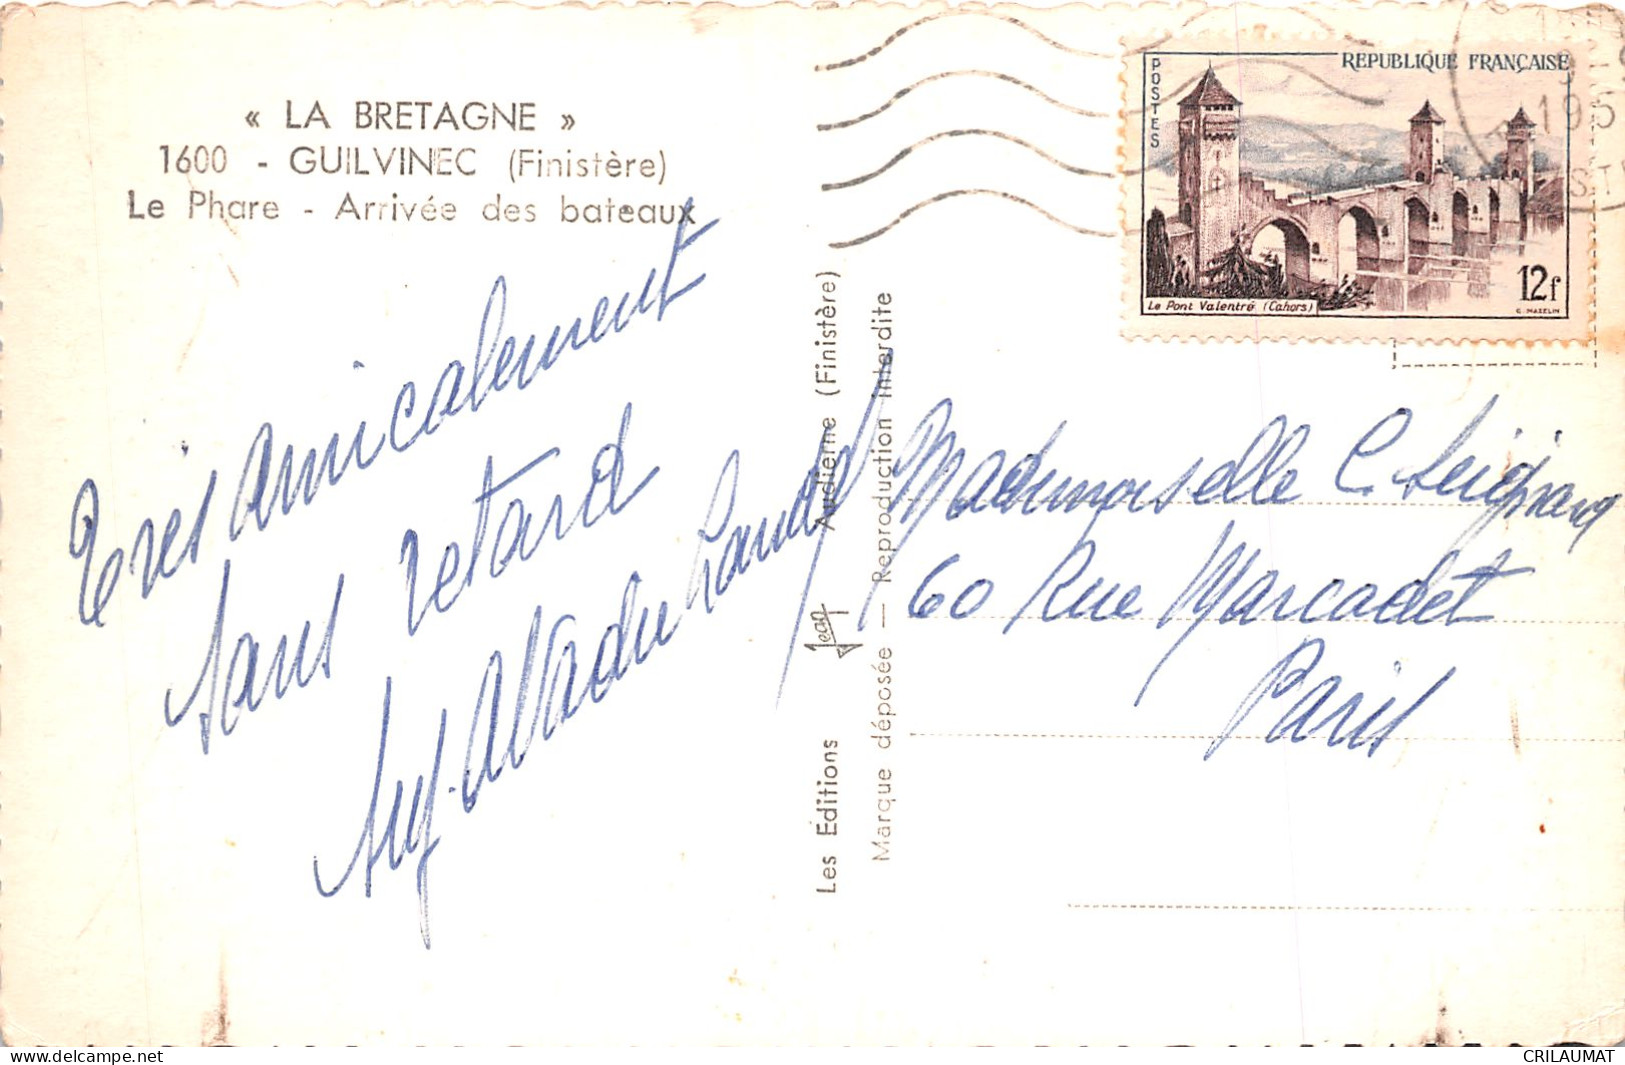 « LA BRETAGNE »
1600 - GUILVINEC (Finistère)
Le Phare - Arrivée des bateaux
Très amicalement
sans retard
Les Editions Jean Audierne (Finistère)
Marque déposée — Reproduction interdite
POSTES
REPUBLIQUE FRANÇAISE
12f
Le Pont Valentré (Cahors)
C. MAZELIN
195
Mademoiselle C.
60 Rue Marcadet
Paris
CRILAUMAT